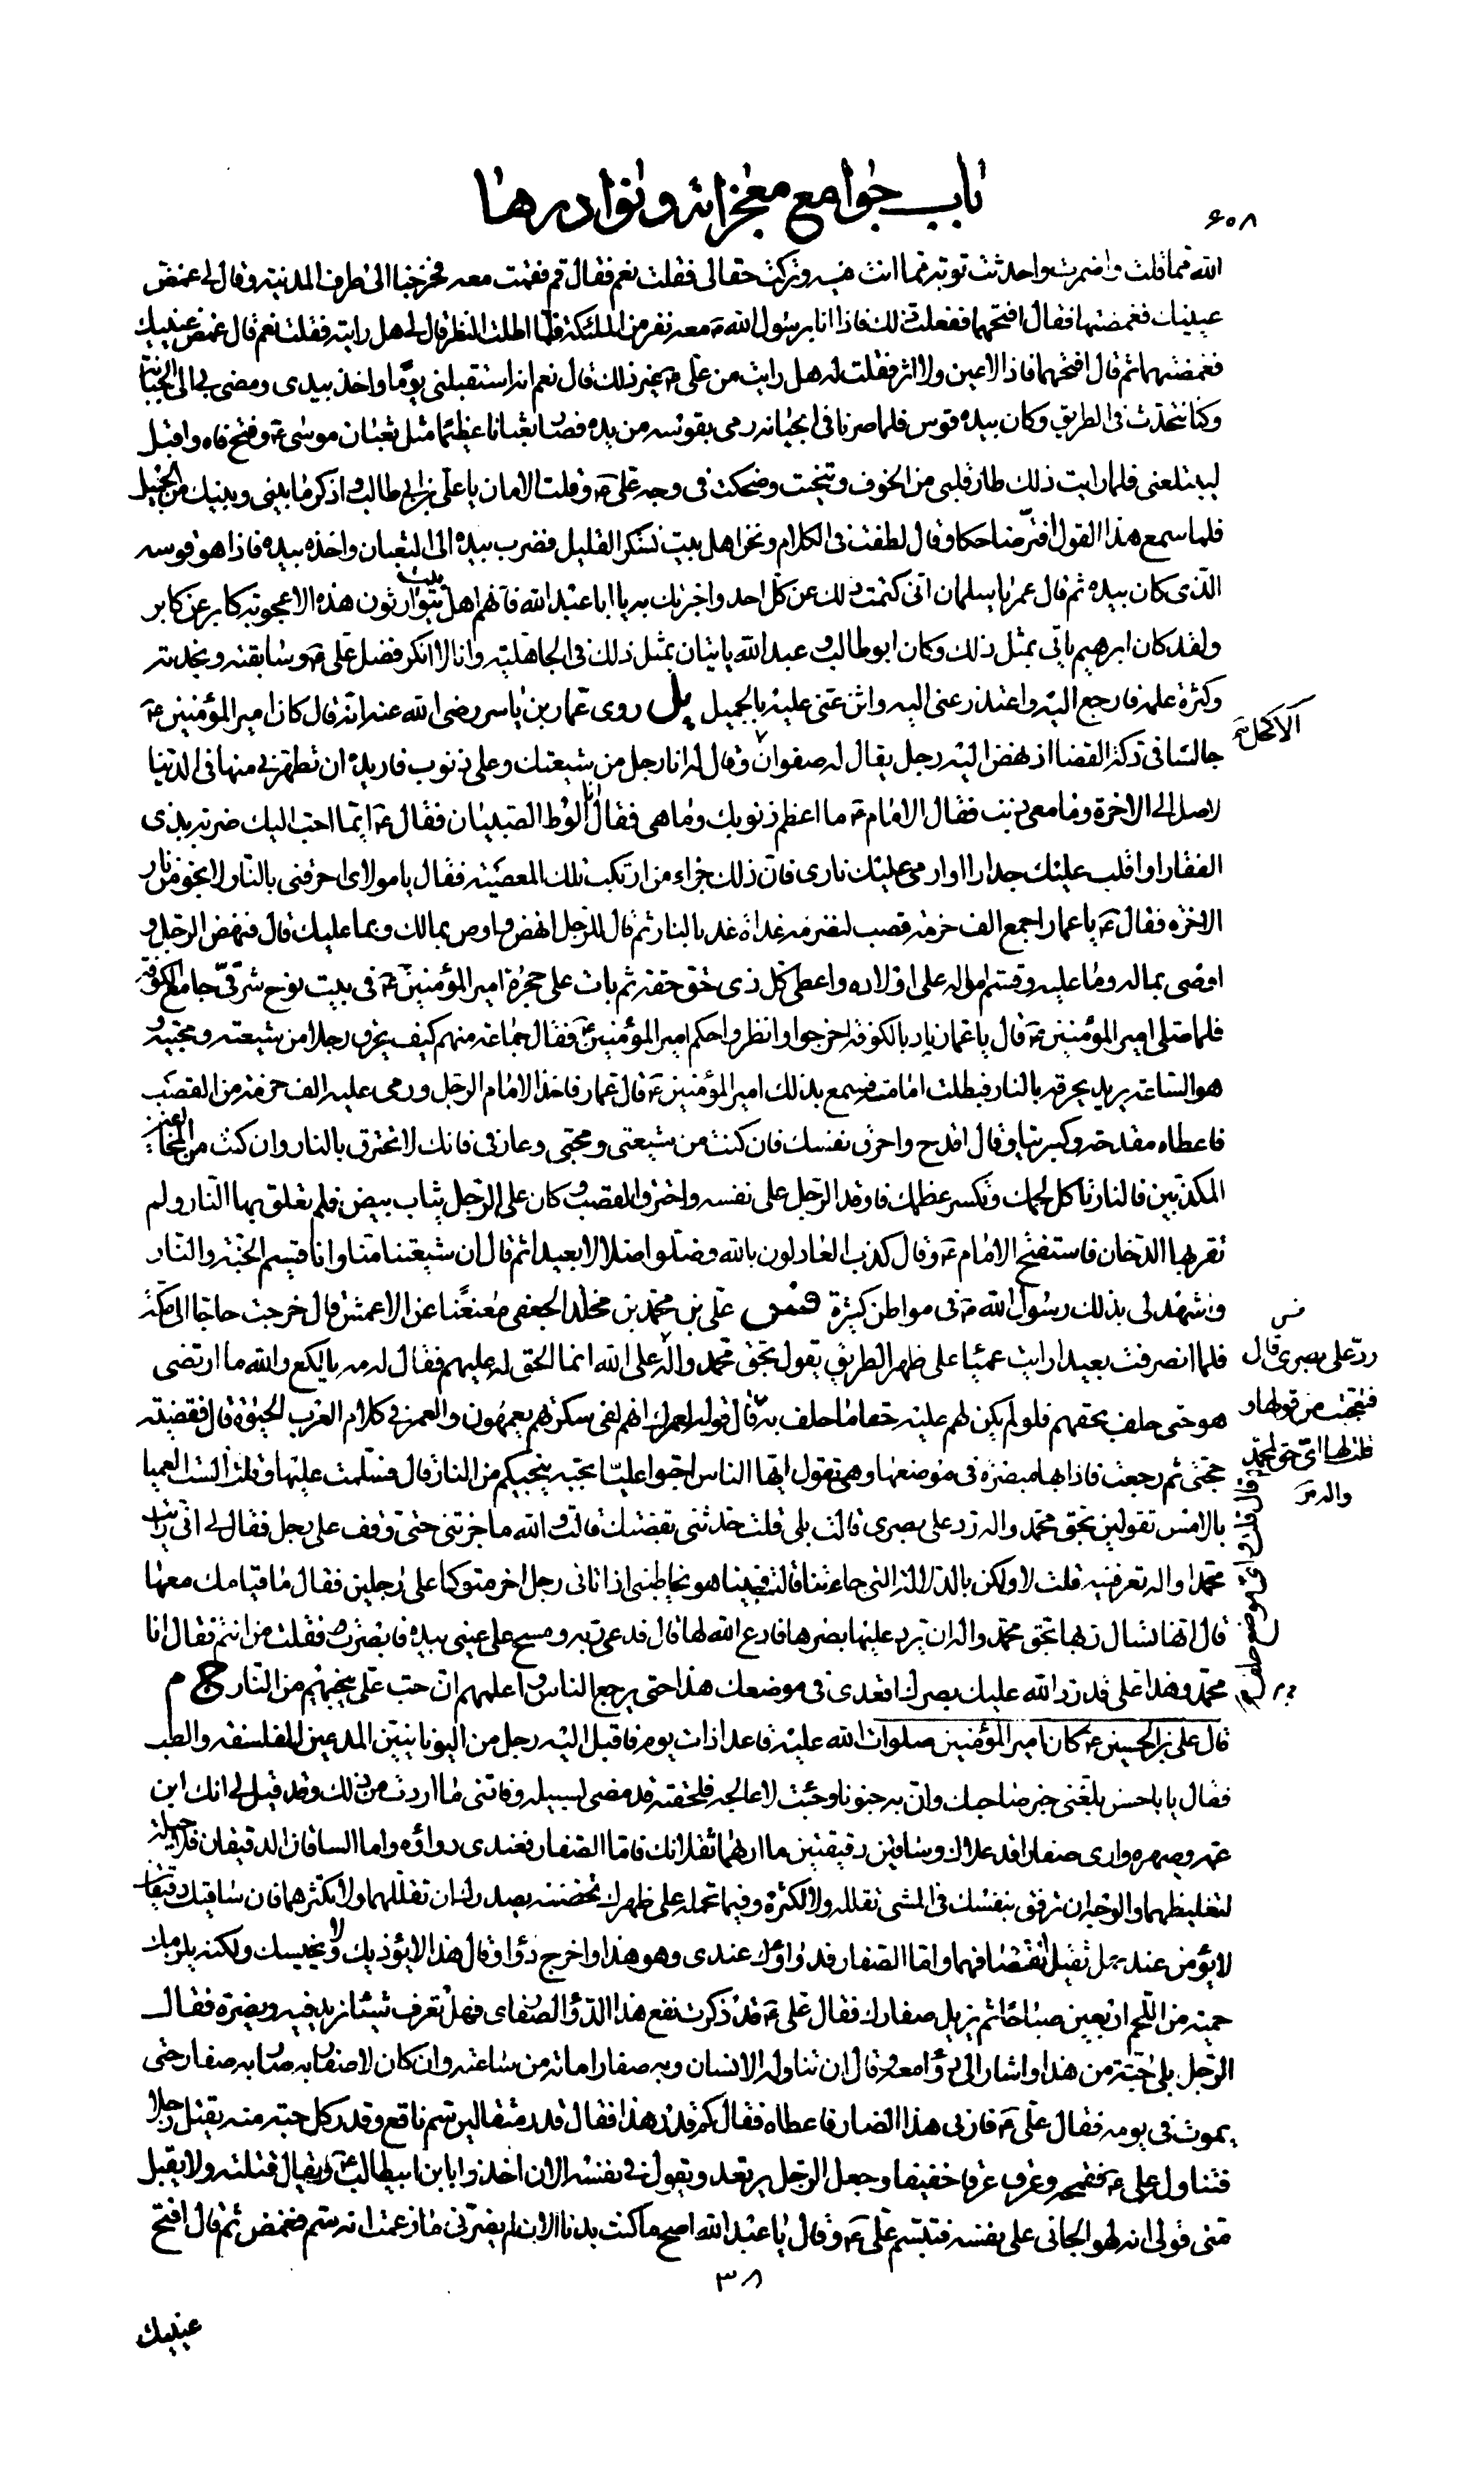 باب جوامع معجزاته و نوادرها
۶۰۸
الله مما قلت واضمرت واحدثت توبة مما انت فيه وتركت حقا لى فقلت نعم فقال قم فقمت معه فخرجنا الى طرف المدينة وقال لى غمض
عينيك فغمضتها فقال افتحهما ففعلت ذلك فاذا انا برسول الله ص معه نفر من الملئكة فلما اطلت النظر قال لى هل رايته فقلت نعم قال غمض عينيك
فغمضتهما ثم قال افتحهما فاذا لا عين ولا اثر فقلت له هل رايت من على ع غير ذلك قال نعم انه استقبلنى يوما واخذ بيدى ومضى بى الى الجبانة
وكنا نتحدث فى الطريق وكان بيده قوس فلما صرنا فى الجبانه رمى بقوسه من يده فصار ثعبانا عظيما مثل ثعبان موسى ع وفتح فاه واقبل
ليبتلعنى فلما رايت ذلك طار قلبى من الخوف وتنحيت وضحكت فى وجه على ع وقلت الامان يا على بن ابى طالب و اذكر ما بينى وبينك من الجميل
فلما سمع هذا القول افتر ضاحكا وقال لطفت فى الكلام ونحن اهل بيت نشكر القليل فضرب بيده الى الثعبان واخذه بيده فاذا هو قوسه
الذى كان بيده ثم قال عمر يا سلمان انى كتمت ذلك عن كل احد واخبرتك به يا ابا عبد الله فانهم اهل بيت يتوارثون هذه الاعجوبة كابر عن كابر
ولقد كان ابرهيم ياتى بمثل ذلك وكان ابو طالب و عبد الله ياتيان بمثل ذلك فى الجاهلية وانا لا انكر فضل على ع وسابقته ونجدته
وكثرة علمه فارجع اليه واعتذر عنى اليه واثن عنى عليه بالجميل يل روى عمار بن ياسر رضى الله عنه انه قال كان امير المؤمنين ع
جالسا فى دكة القضا اذ نهض اليه رجل يقال له صفوان وقال له انا رجل من شيعتك وعلى ذنوب فاريد ان تطهرنى منها فى الدنيا
الاكحل
لاصل الى الاخرة وما معى ذنب فقال الامام ع ما اعظم ذنوبك وما هى فقال انا الوط الصبيان فقال ع ايما احب اليك ضربة بذى
الفقار او اقلب عليك جدارا او ارمى عليك نارى فان ذلك جزاء من ارتكب تلك المعصية فقال يا مولاى احرقنى بالنار لانجو من نار
الاخره فقال ع يا عمار اجمع الف حزمة قصب لنضرمه غداة غد بالنار ثم قال للرجل انهض واوص بمالك وبما عليك قال فنهض الرجل و
اوصى بماله وما عليه وقسم امواله على اولاده واعطى كل ذى حق حقه ثم بات على حجرة امير المؤمنين ع فى بيت نوح شرقى جامع الكوفة
فلما صلى امير المؤمنين ع قال يا عمار ناد بالكوفة اخرجوا وانظروا حكم امير المؤمنين ع فقال جماعة منهم كيف يحرق رجلا من شيعته ومحبيه و
هو الساعة يريد يحرقه بالنار فبطلت امامته فسمع بذلك امير المؤمنين ع قال عمار فاخذ الامام الرجل ورمى عليه الف حزمة من القصب
فاعطاه مقدحة وكبريتا وقال اقدح واحرق نفسك فان كنت من شيعتى ومحبى وعارفى فانك لا تحترق بالنار وان كنت من المخالفين
المكذبين فالنار تاكل لحمك وتكسر عظمك فاوقد الرجل على نفسه واحترق القصب وكان على الرجل ثياب بيض فلم تعلق بها النار ولم
تقربها الدخان فاستفتح الامام ع وقال كذب العادلون بالله وضلوا ضلالا بعيدا ثم قال ان شيعتنا منا وانا قسيم الجنة والنار
واشهد لى بذلك رسول الله ص فى مواطن كثيرة فس على بن محمد بن مخلد الجعفى معنعنا عن الاعمش قال خرجت حاجا الى مكة
فلما انصرفت بعيدا رايت عميا على ظهر الطريق تقول بحق محمد واله
رد على بصرى قال
فتعجبت من قولها و
قلت لها اى حق لمحمد
واله
على الله انما الحق له عليهم فقال له مه يا لكع والله ما ارتضى
هو حتى حلف بحقهم فلو لم يكن لهم عليه حقا ما حلف به قال قلت واى موضع حلف قال قوله لعمرك انهم لفى سكرتهم يعمهون والعمر فى كلام العرب الحيوة قال فقضيت
حجتى ثم رجعت فاذا بها مبصرة فى موضعها وهى تقول ايها الناس احبوا عليا بحبه ينجيكم من النار قال فسلمت عليها وقلت الست العميا
بالامس تقولين بحق محمد واله رد على بصرى قالت بلى قلت حدثنى بقصتك قالت والله ما جزتنى حتى وقف على رجل فقال لى ان رايت
محمدا واله تعرفيه قلت لا ولكن بالدلالة التى جاءتنا قالت فبينا هو يخاطبنى اذ اتانى رجل اخر متوكيا على رجلين فقال ما قيامك معها
قال انها تسال ربها بحق محمد واله ان يرد عليها بصرها فادع الله لها قال فدعى ربه ومسح على عينى بيده فابصرت فقلت من انتم فقال انا
محمد وهذا على قد رد الله عليك بصرك اقعدى فى موضعك هذا حتى يرجع الناس و اعلميهم ان حب على ينجيهم من النار ج م
قال على بن الحسين ع كان امير المؤمنين صلوات الله عليه قاعدا ذات يوم فاقبل اليه رجل من اليونانيين المدعين للفلسفة والطب
فقال يا با حسن بلغنى خبر صاحبك وان به جنونا وجئت لاعالجه فلحقته قد مضى لسبيله وفاتنى ما اردت من ذلك وقد قيل لى انك ابن
عمه وصهره وارى صفارا قد علاك وساقين دقيقتين ما اراهما تقلانك فاما الصفار فعندى دواؤه واما الساقان الدقيقان فلا حيلة
لتغليظهما والوجه ان ترفق بنفسك فى المشى تقلله ولا تكثره وفيما تحمله على ظهرك وتحضنه بصدرك ان تقللهما ولا تكثرهما فان ساقيك دقيقان
لا يؤمن عند حمل ثقيل انقصافهما واما الصفار فدواؤك عندى وهو هذا واخرج دوا وقال هذا لا يؤذيك ولا يخيسك ولكنه يلزمك
حمية من اللحم اربعين صباحا ثم يزيل صفارك فقال على ع قد ذكرت نفع هذا الدوا لصفارى فهل تعرف شيئا يزيد فيه ويضره فقال
الرجل بلى حبة من هذا واشار الى دوا معه وقال ان تناوله الانسان وبه صفار اماته من ساعته وان كان لا صفار به صار به صفار حتى
يموت فى يومه فقال على ع فارنى هذا الضار فاعطاه فقال كم قدر هذا فقال قدر مثقالين سم ناقع وقدر كل حبة منه يقتل رجلا
فتناول على ع فقمحه وعرق عرقا خفيفا وجعل الرجل يرتعد ويقول فى نفسه الان اخذ وابا بن ابيطالب ع ويقال قتلته ولا يقبل
منى قولى انه لهو الجانى على نفسه فتبسم على ع وقال يا عبد الله اصح ما كنت بدنا الان لم يضرنى ما زعمت انه سم فغمض ثم قال افتح
۳۸
عينيك